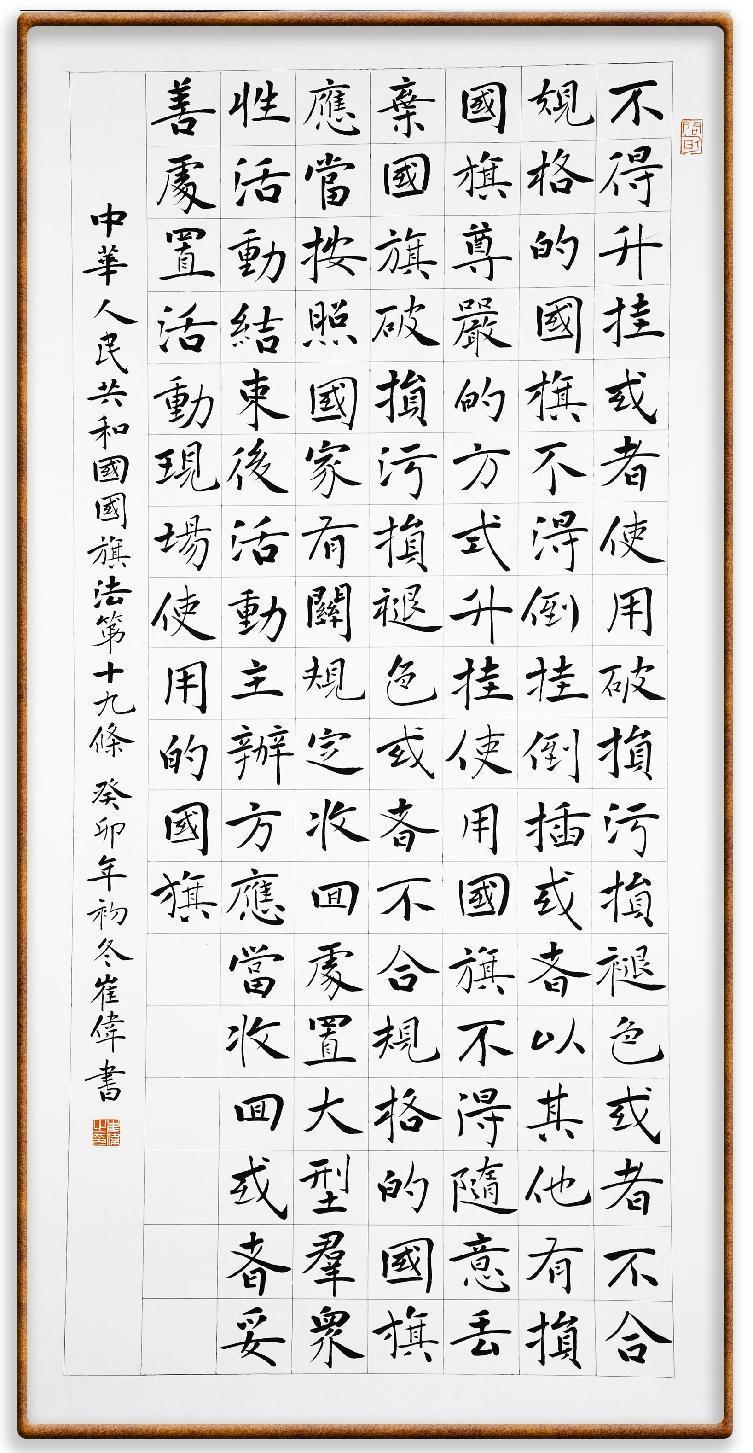 不得升挂或者使用破損污損褪色或者不合
規格的國旗不得倒挂倒插或者以其他有損
國旗尊嚴的方式升挂使用國旗不得隨意丢
棄國旗破損污損褪色或者不合規格的國旗
應當按照國家有關規定收回處置大型羣眾
性活動結束後活動主辦方應當收回或者妥
善處置活動現場使用的國旗
中華人民共和國國旗法第十九條 癸卯年初冬崔偉書
崔偉之印